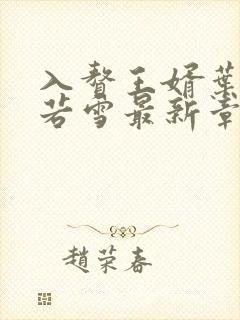 入赘王婿葉
若雪最新章
趙荣春